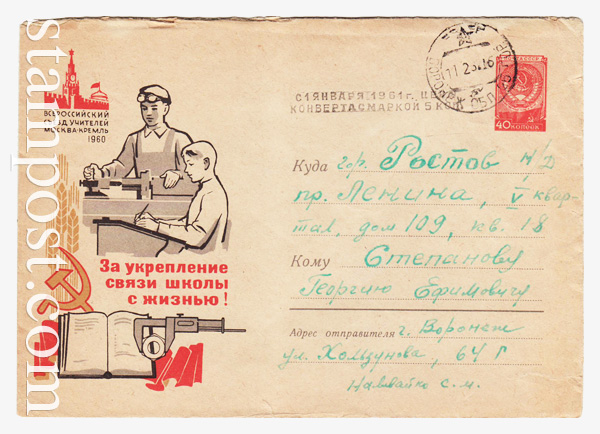 stampost.com
ВСЕРОССИЙСКИЙ
СЪЕЗД УЧИТЕЛЕЙ
МОСКВА-КРЕМЛЬ
1960
С 1 ЯНВАРЯ 1961 г. ЦЕНА
КОНВЕРТА С МАРКОЙ 5 КОП
40 КОПЕЕК
Куда гор. Ростов н/Д
пр. Ленина, V квар-
тал, дом 109, кв. 18
Кому Степанову
Георгию Ефимовичу
Адрес отправителя г. Воронеж
ул. Хользунова, 64 г
Наливайко С. М.
За укрепление
связи школы
с жизнью!